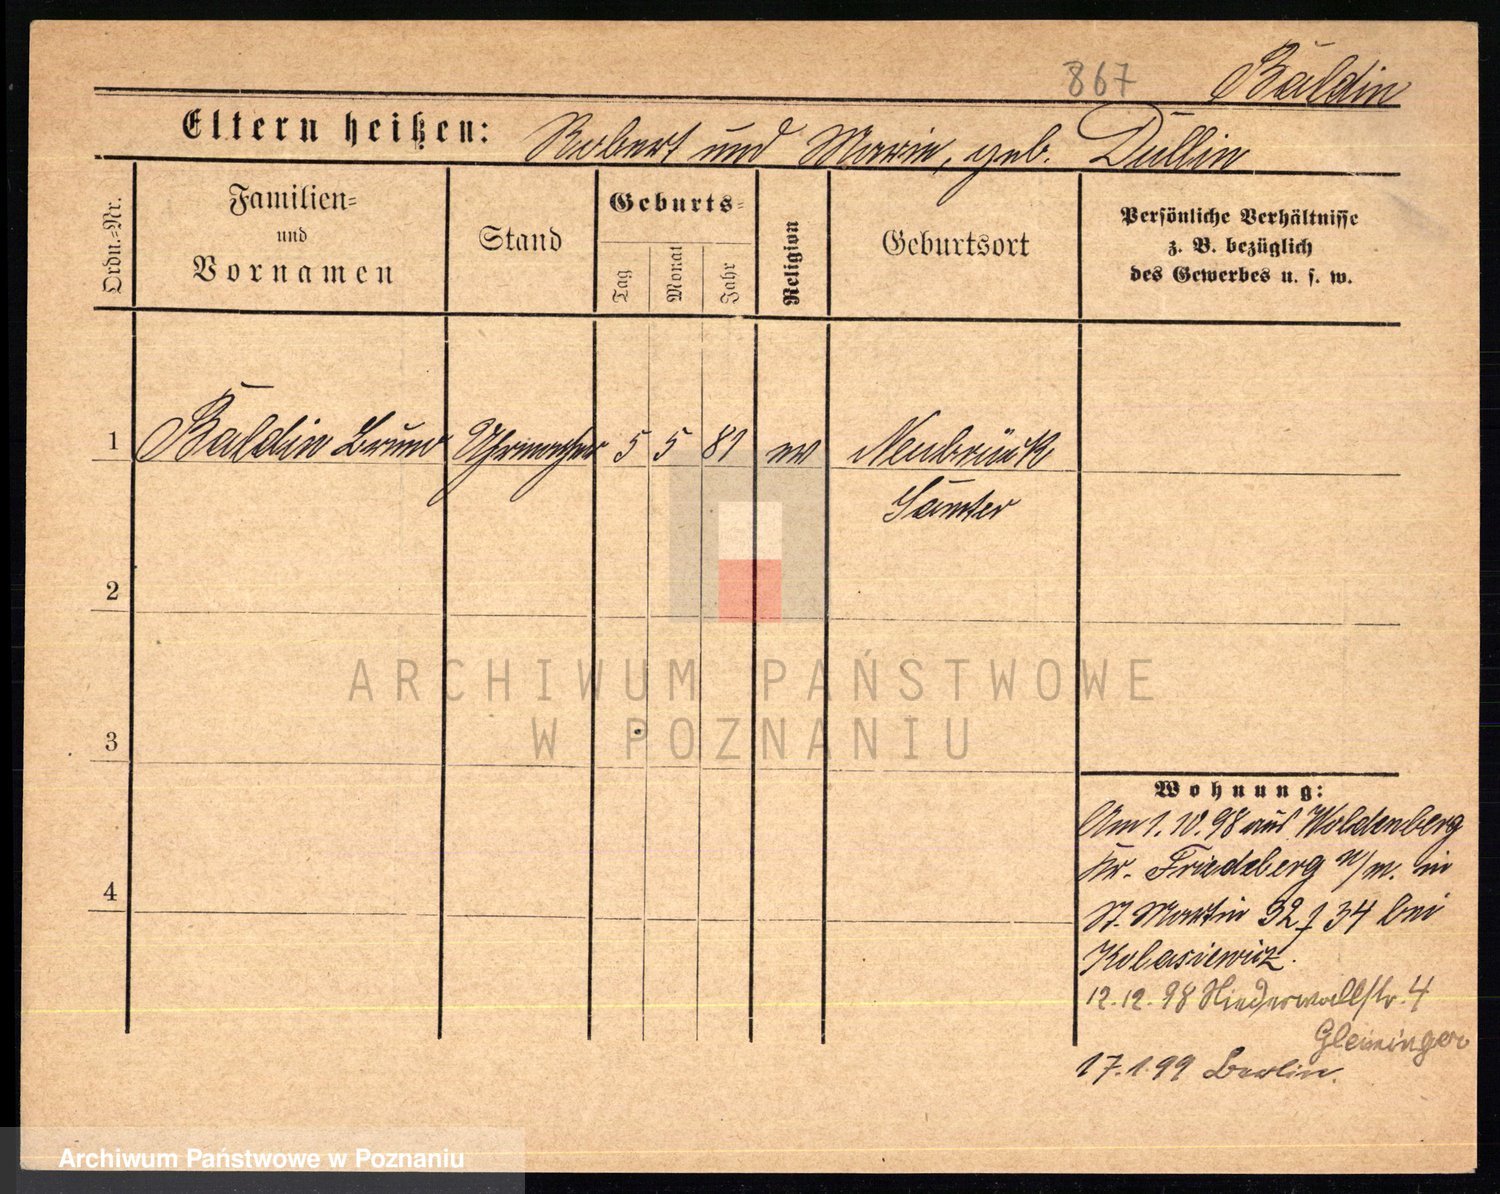 867 Baldin
Eltern heißen: Robert und Marie, geb. Dullin
Ordn.=Nr.
Familien=
und
Vornamen
Stand
Geburts=
Tag
Monat
Jahr
Religion
Geburtsort
Persönliche Verhältnisse
z. B. bezüglich
des Gewerbes u. s. w.
1 Baldin Bruno Uhrmacher 5 5 81 ev Neubrück
Samter
2
ARCHIWUM PAŃSTWOWE
W POZNANIU
3
Wohnung:
Am 1.10.98 aus Woldenberg
Kr. Friedeberg n/m. in
St. Martin 32/34 bei
Kolasiewicz.
12.12.98 Niederwallstr. 4
Gleininger
17.1.99 Berlin.
4
Archiwum Państwowe w Poznaniu